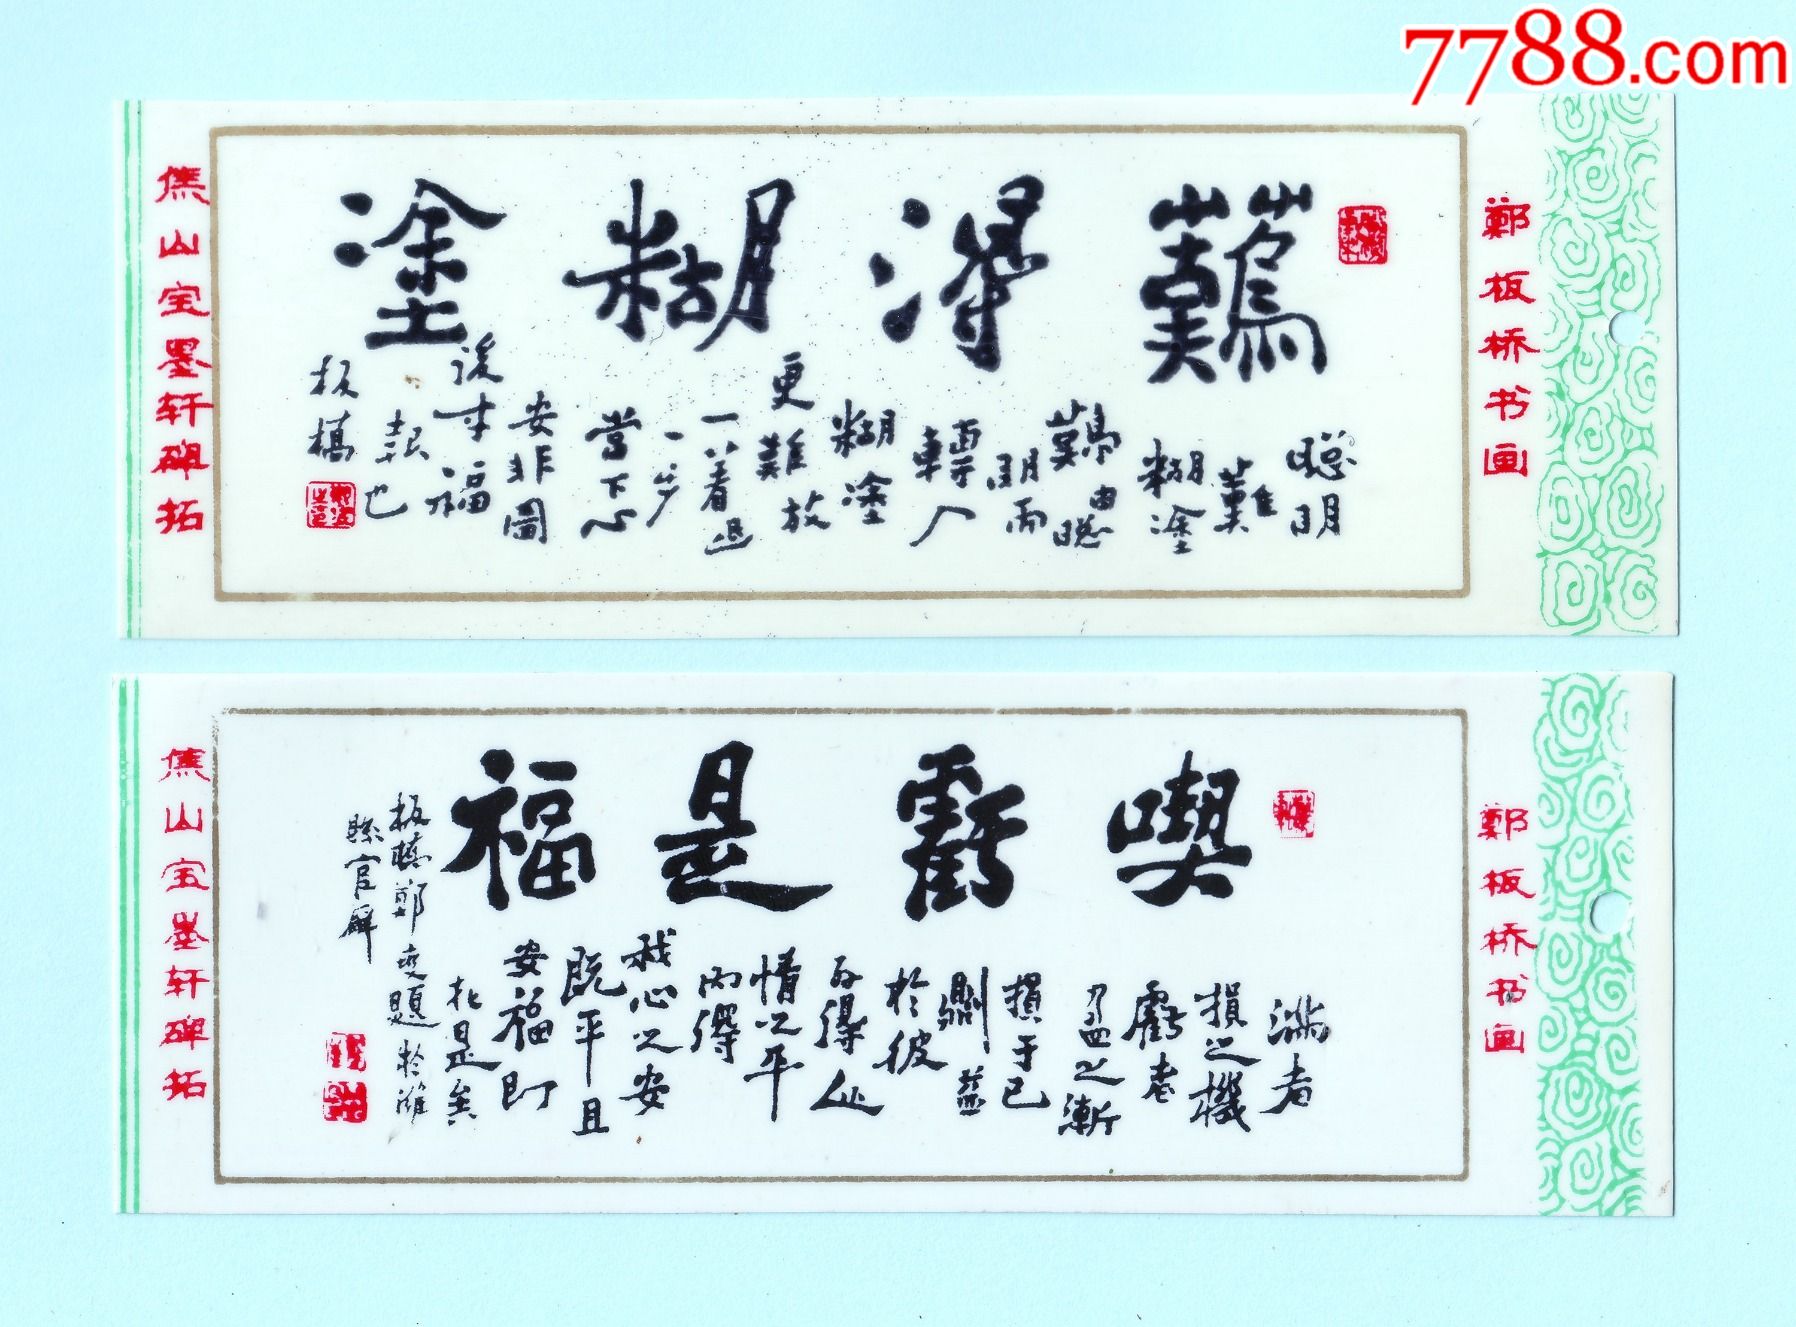 7788.com
鄭板桥书画
難得糊塗
聪明
難
糊塗
難由聪
明而
轉入
糊塗
更難放
一着退
一步
當下心
安非圖
後来福
報也
板橋
焦山宝墨轩碑拓
鄭板桥书画
喫虧是福
滿者
損之機
虧者
盈之漸
損于己
則益
於彼
外得人
情之平
内得
我心之安
既平且
安福即
在是矣
板橋鄭燮題於濰
縣官廨
焦山宝墨轩碑拓